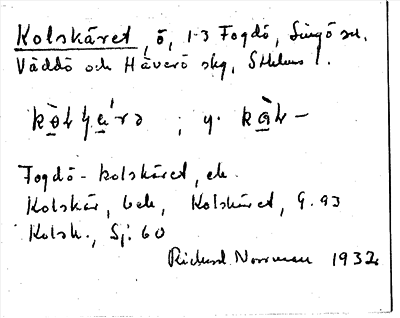 Kolskäret, ö, 1-3 Fogdö, Singö sn.
Väddö och Häverö skg, Sthlms l.
Fogdö-kolskäret, ek.
Kolskär, beb, Kolskäret, G. 93
Kolsk., Sj. 60
Richard Norrman 1932